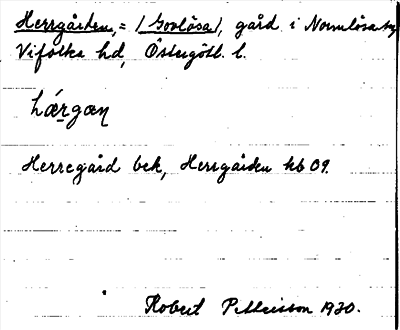 Herrgården, = /Govlösa/, gård i Normlösa sn,
Vifolka hd, Östergötl. l.
hǽrgæn
Herregård bek, Herrgården kb 09.
Robert Pettersson 1930.